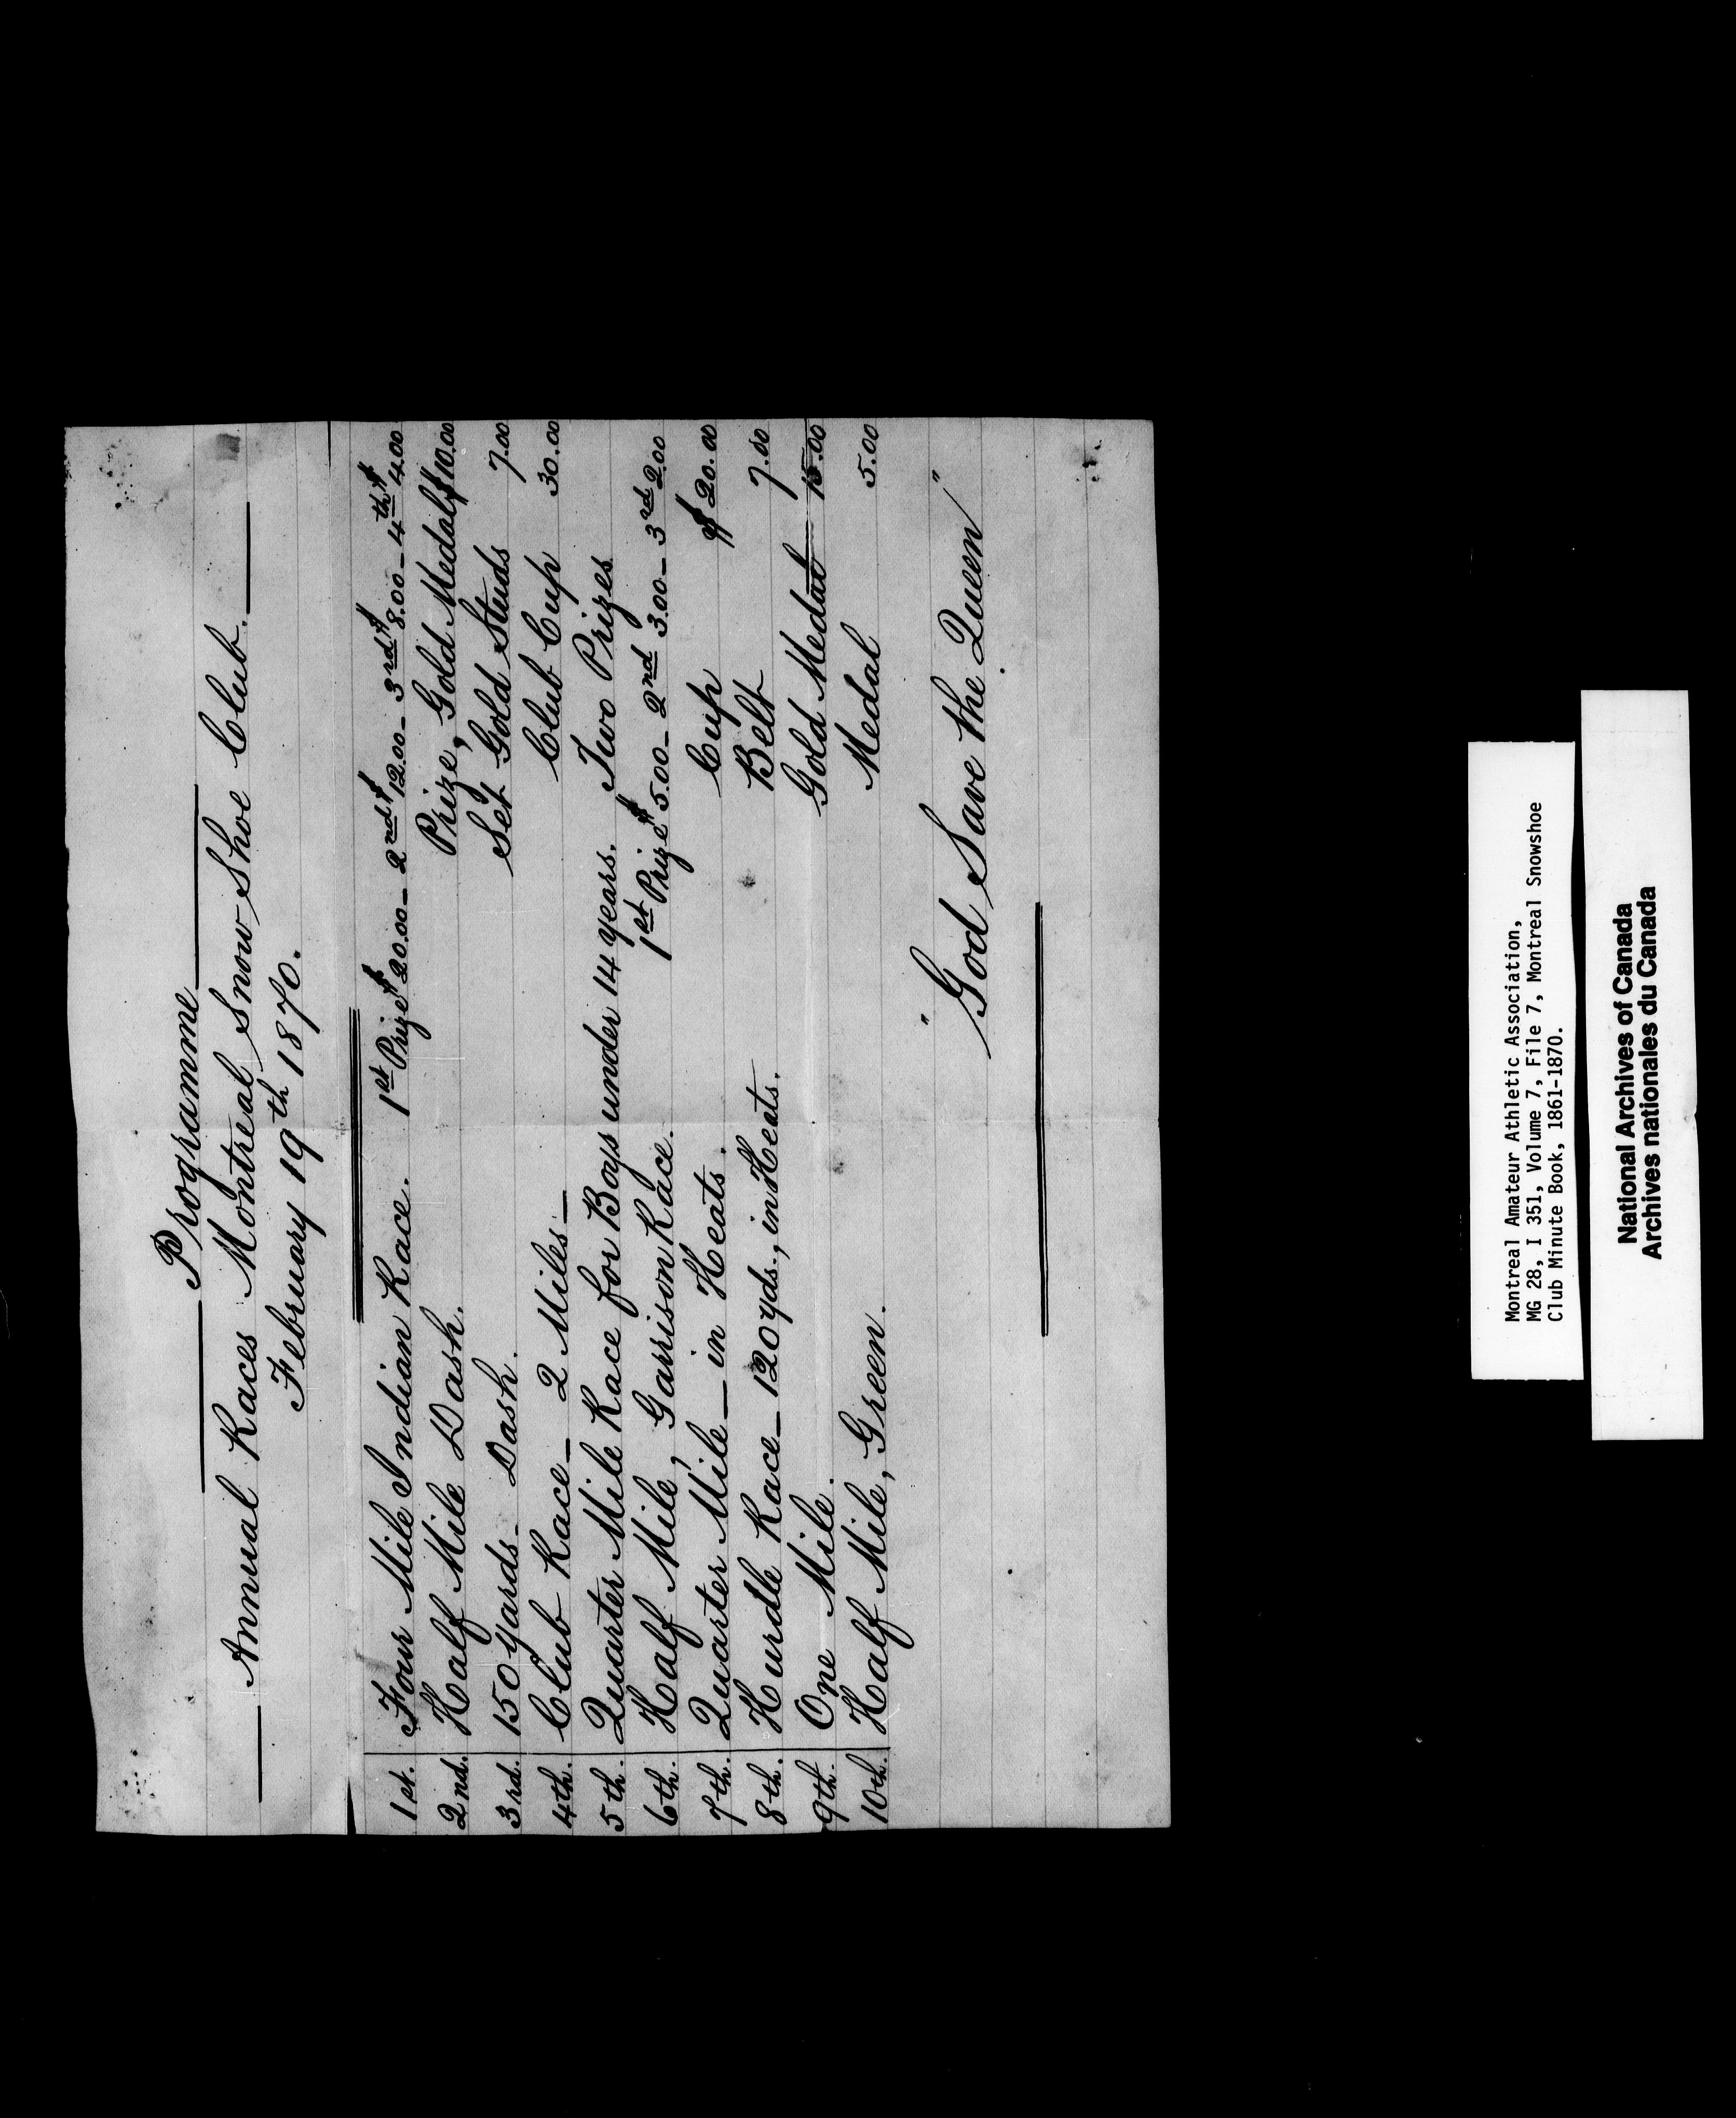 Programme
Annual Races Montreal Snow Shoe Club.
February 19th 1870.
1st. Four Mile Indian Race. 1st Prize $20.00 – 2nd $12.00 – 3rd $8.00 – 4th $4.00
2nd. Half Mile Dash. Prize, Gold Medal $10.00
3rd. 150 Yards – Dash. Set Gold Studs 7.00
4th. Club Race – 2 Miles – Club Cup 30.00
5th. Quarter Mile Race for Boys under 14 years. Two Prizes.
6th. Half Mile, Garrison Race. 1st Prize $5.00 – 2nd 3.00 – 3rd 2.00
7th. Quarter Mile – in Heats. Cup $20.00
8th. Hurdle Race – 120 yds., in Heats. Belt 7.00
9th. One Mile. Gold Medal 15.00
10th. Half Mile, Green. Medal 5.00
"God Save the Queen"
Montreal Amateur Athletic Association,
MG 28, I 351, Volume 7, File 7, Montreal Snowshoe
Club Minute Book, 1861-1870.
National Archives of Canada
Archives nationales du Canada